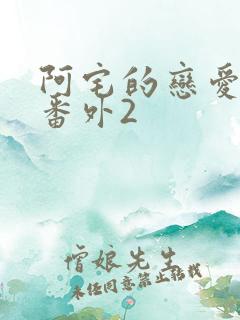 阿宅的戀愛
番外2
僧娘先生
未經同意禁止轉載